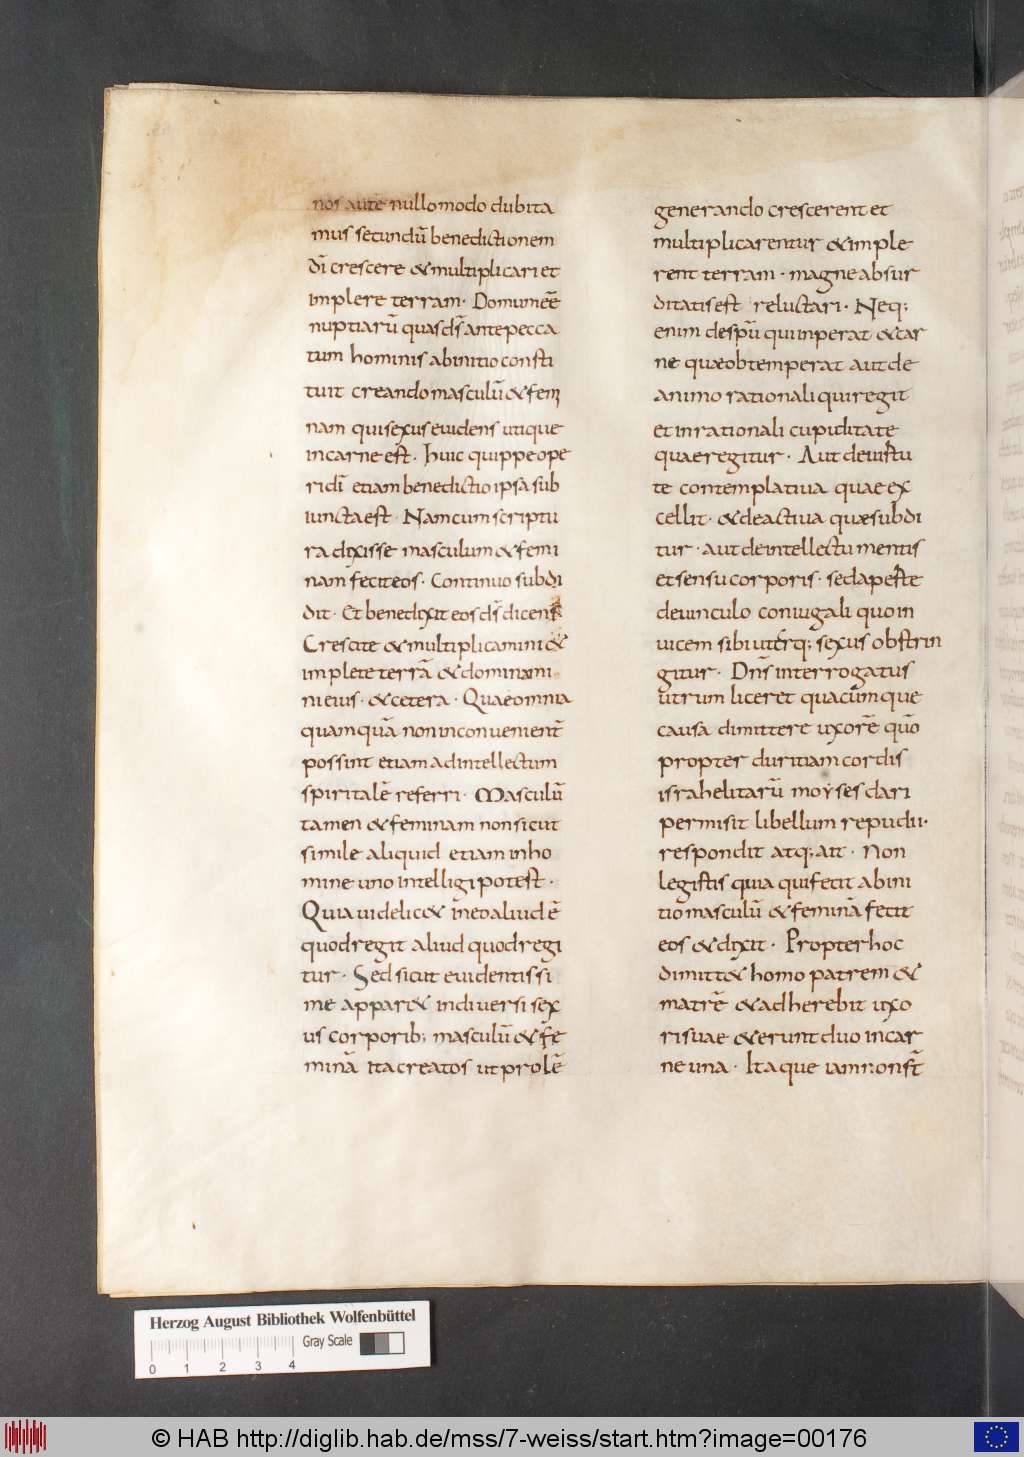 nos autē nullo modo dubita
mus secundū benedictionem
dī crescere & multiplicari et
implere terram· Donum eē
nuptiarū quas ds̄ ante pecca
tum hominis ab initio consti
tuit creando masculū & femi
nam qui sexus euidens utique
in carne est· Huic quippe ope
ri dī etiam benedictio ipsa sub
iuncta est· Nam cum scriptu
ra dixisse masculum & femi
nam fecit eos· Continuo subdi
dit· Et benedixit eos ds̄ dicens
Crescite & multiplicamini &
implete terrā & dominami
ni eius· & cetera· Quae omnia
quamquā non inconuenient̄
possint etiam ad intellectum
spiritalē referri· Masculū
tamen & feminam non sicut
simile aliquid etiam in ho
mine uno intelligi potest·
Quia uidelic& in eo aliud ē
quod regit aliud quod regi
tur· Sed sicut euidentissi
me appar& in diuersi sex
us corporib; masculū & fe
minā ita creatos ut prolē
generando crescerent et
multiplicarentur & imple
rent terram· magne absur
ditatis est reluctari· Neq;
enim de spū qui inperat & car
ne quae obtemperat aut de
animo rationali qui regit
et inrationali cupiditate
quae regitur· Aut de uirtu
te contemplatiua quae ex
cellit· & de actiua quae subdi
tur· aut de intellectu mentis
et sensu corporis· sed aperte
de uinculo coniugali quo in
uicem sibi uterq; sexus obstrin
gitur· Dn̄s interrogatus
utrum liceret quacumque
causa dimittere uxorē quō
propter duritiam cordis
israhelitarū moyses dari
permisit libellum repudii·
respondit atq; ait· Non
legistis quia qui fecit ab ini
tio masculū & feminā fecit
eos & dixit· Propter hoc
dimitt& homo patrem &
matrē & adherebit uxo
ri suae & erunt duo in car
ne una· Itaque iam non st̄
Herzog August Bibliothek Wolfenbüttel
Gray Scale
0 1 2 3 4
© HAB http://diglib.hab.de/mss/7-weiss/start.htm?image=00176